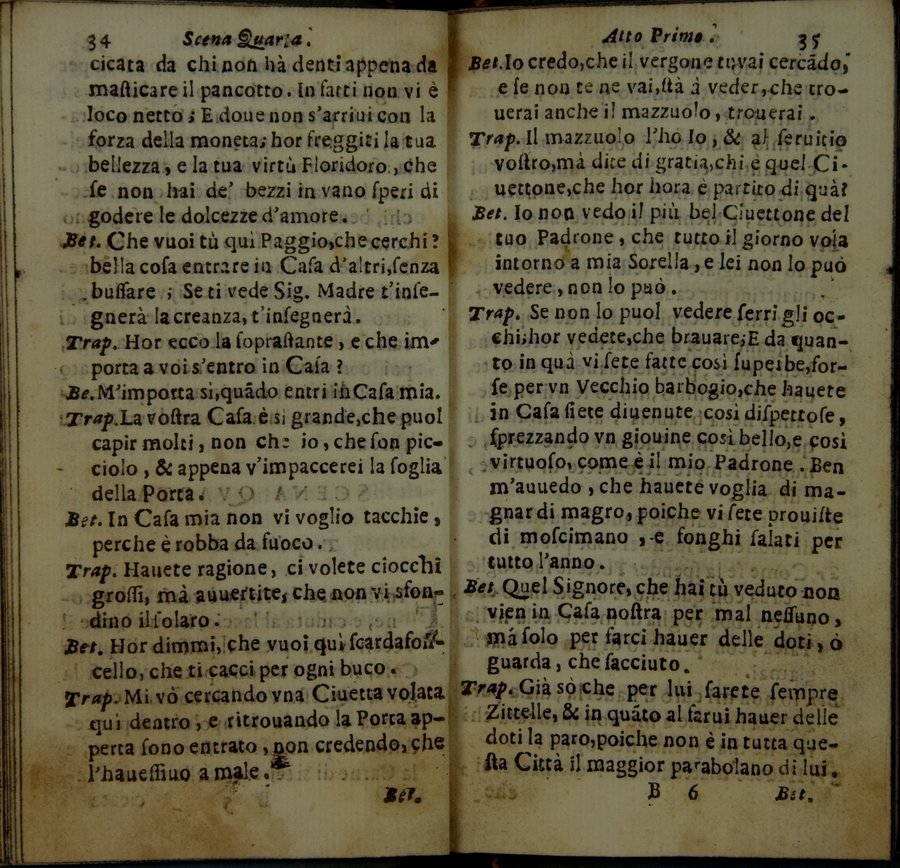 34 Scena Quarta.
cicata da chi non hà denti appena da
maſticare il pancotto. In fatti non vi è
loco netto; E doue non s'arriui con la
forza della moneta; hor freggiti la tua
bellezza, e la tua virtù Floridoro, che
ſe non hai de' bezzi in vano ſperi di
godere le dolcezze d'amore.
Bet. Che vuoi tù quì Paggio, che cerchi?
bella coſa entrare in Caſa d'altri, ſenza
buſſare; Se ti vede Sig. Madre t'inſe-
gnerà la creanza, t'inſegnerà.
Trap. Hor ecco la ſopraſtante, e che im-
porta a voi s'entro in Caſa?
Be. M'importa sì, quãdo entri in Caſa mia.
Trap. La voſtra Caſa è sì grande, che puol
capir molti, non che io, che ſon pic-
ciolo, & appena v'impaccerei la ſoglia
della Porta.
Bet. In Caſa mia non vi voglio tacchie,
perche è robba da fuoco.
Trap. Hauete ragione, ci volete ciocchi
groſſi, mà auuertite, che non vi sfon-
dino il ſolaro.
Bet. Hor dimmi, che vuoi quì ſcardafoſſ-
cello, che ti cacci per ogni buco.
Trap. Mi vò cercando vna Ciuetta volata
quì dentro, e ritrouando la Porta ap-
perta ſono entrato, non credendo, che
l'haueſſiuo a male.
Bet.
Atto Primo. 35
Bet. Io credo, che il vergone tu vai cercãdo,
e ſe non te ne vai, ſtà à veder, che tro-
uerai anche il mazzuolo, trouerai.
Trap. Il mazzuolo l'hò Io, & al ſeruitio
voſtro, mà dite di gratia, chi è quel Ci-
uettone, che hor hora è partito di quà?
Bet. Io non vedo il più bel Ciuettone del
tuo Padrone, che tutto il giorno vola
intorno a mia Sorella, e lei non lo può
vedere, non lo può.
Trap. Se non lo puol vedere ſerri gli oc-
chi; hor vedete, che brauare; E da quan-
to in quà vi ſete fatte così ſuperbe, for-
ſe per vn Vecchio barbogio, che hauete
in Caſa ſiete diuenute così diſpettoſe,
ſprezzando vn giouine così bello, e così
virtuoſo, come è il mio Padrone. Ben
m'auuedo, che hauete voglia di ma-
gnar di magro, poiche vi ſete prouiſte
di moſcimano, e fonghi ſalati per
tutto l'anno.
Bet. Quel Signore, che hai tù veduto non
vien in Caſa noſtra per mal neſſuno,
má ſolo per farci hauer delle doti, ò
guarda, che facciuto.
Trap. Già sò che per lui ſarete ſempre
Zittelle, & in quãto al farui hauer delle
doti la paro, poiche non è in tutta que-
ſta Città il maggior parabolano di lui.
B 6 Bet.